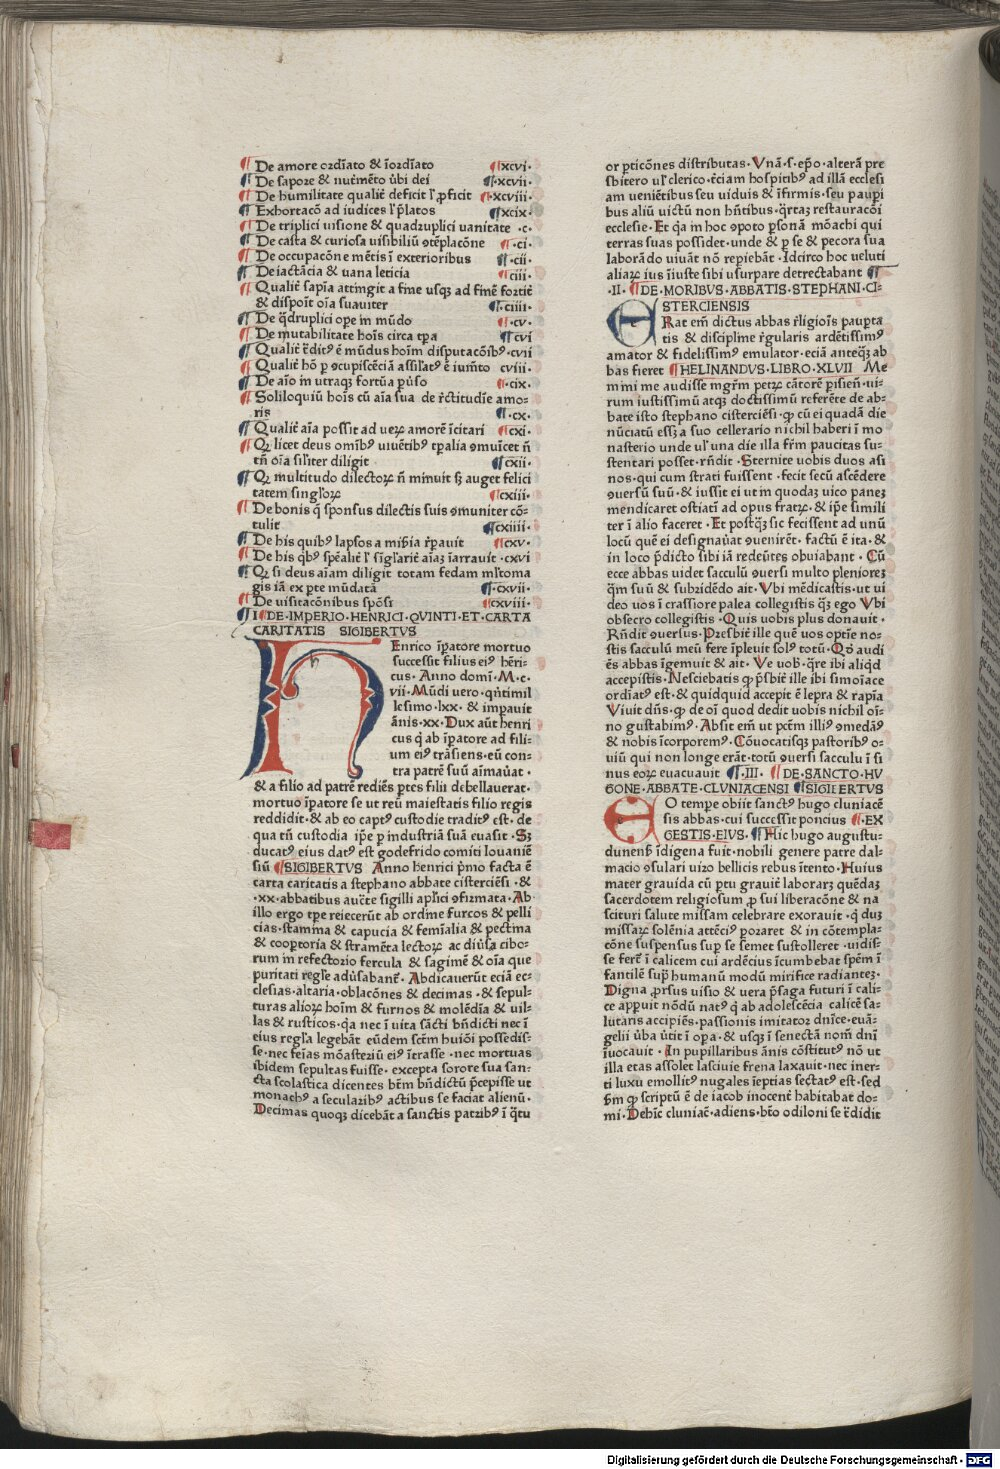 ¶ De amore ordīato & īordīato ¶xcvi·
¶ De sapore & nut̄mēto ūbi dei ¶·xcvii·
¶ De humilitate qualit̄ deficit ł ꝓficit ¶·xcviii·
¶ Exhortacō ad iudices ł p̄latos ¶xcix·
¶ De triplici uisione & quadruplici uanitate ·c·
¶ De casta & curiosa uisibiliū ꝯtēplacōne ¶·ci·
¶ De occupacōne mētis ī exterioribus ¶·cii·
¶ De iactācia & uana leticia ¶ciii·
¶ Qualit̄ sapīa attingit a fine usqꝫ ad finē fortit̄
& dispoīt oīa suauiter ¶·ciiii·
¶ De q̄druplici oꝑe in mūdo ¶·cv·
¶ De mutabilitate hoīs circa tꝑa ¶cvi
¶ Qualit̄ c̄dit᷒ ē mūdus hoīm disputacōib᷒·cvii
¶ Qualit̄ hō ꝑ ꝯcupiscēciā assīlat᷒ ē iumēto cviii·
¶ De aīo in utraqꝫ fortūa ꝑūso ¶·cix·
¶ Soliloquiū hoīs cū aīa sua de r̄ctitudīe amo-
ris ¶·cx·
¶ Qualit̄ aīa possit ad ueꝝ amorē īcitari ¶cxi·
¶ Qꝙ licet deus omīb᷒ uiuētib᷒ tꝑalia ꝯmuīcet n̄
tn̄ oīa sil̄iter diligit ¶cxii·
¶ Qꝙ multitudo dilectoꝝ n̄ minuit sꝫ auget felici
tatem singl̄oꝝ ¶cxiii·
¶ De bonis q̄ sponsus dilectis suis ꝯmuniter cō-
tulit ¶cxiiii·
¶ De his quib᷒ lapsos a mīsia r̄ꝑauit ¶cxv·
¶ De his qb᷒ spēalit̄ ł sīgl̄arit̄ aīaꝫ īarrauit ·cxvi
¶ Qꝙ si deus aīam diligit totam fedam ml̄toma
gis iā ex pte mūdatā ¶·cxvii·
¶ De uisitacōnibus spōsi ¶cxviii·
¶ I ¶DE·IMPERIO·HENRICI·QVINTI·ET·CARTA
CARITATIS SIGIBERTVS
HEnrico īꝑatore mortuo
successit filius ei᷒ hēri-
cus· Anno domī·M·c·
vii·Mūdi uero·qn̄timil
lesimo·lxx·& imꝑauit
ānis·xx·Dux aūt henri
cus q̄ ab īꝑatore ad fili-
um ei᷒ trāsiens·eū con-
tra patrē suū aīmaūat·
& a filio ad patrē rediēs ꝑtes filii debellauerat·
mortuo īꝑatore se ut reū maiestatis filio regis
reddidit·& ab eo capt᷒ custodie tradit᷒ est·de
qua tn̄ custodia iꝑe ꝑ industriā suā euasit·Sꝫ
ducat᷒ eius dat᷒ est godefrido comiti louaniē
siū ¶SIGIBERTVS Anno henrici pͥmo facta ē
carta caritatis a stephano abbate cisterciēsi·&
·xx·abbatibus auct̄e sigilli apl̄ici ꝯfirmata·Ab
illo ergo tꝑe reiecerūt ab ordine furcos & pelli
cias·stamina & capucia & femīalia & pectina
& cooꝑtoria & stramēta lectoꝝ ac diūsa cibo-
rum in refectorio fercula & sagimē & oīa que
puritati regl̄e adūsabant̄· Abdicauerūt eciā ec-
clesias·altaria·oblacōnes & decimas·& sepul-
turas alioꝝ hoīm & furnos & molēdīa & uil-
las & rusticos·qa nec ī uita sācti bn̄dicti nec ī
eius regl̄a legebāt eūdem sct̄m huiōi possedis-
se·nec feīas mōasteriū ei᷒ ītrasse·nec mortuas
ibidem sepultas fuisse· excepta sorore sua san-
cta scolastica dicentes btm̄ bn̄dictū p̄cepisse ut
monach᷒ a secularib᷒ actibus se faciat alienū·
Decimas quoqꝫ dicebāt a sanctis patrib᷒ ī q̄tu
or ꝑticōnes distributas·Vnā·s·eꝑo·alterā pre
sbitero ul̓ clerico·t̄ciam hospitib᷒ ad illā ecclesi
am ueniētibus seu uiduis & īfirmis·seu pauꝑi
bus aliū uictū non hn̄tibus·q̄rtaꝫ restauracōi
ecclesie·Et qa in hoc ꝯpoto ꝑsonā mōachi qui
terras suas possidet·unde & ꝑ se & pecora sua
laborādo uiuāt nō reꝑiebāt·Idcirco hoc ueluti
aliaꝝ ius īiuste sibi usurpare detrectabant ¶
·II· ¶DE·MORIBVS·ABBATIS·STEPHANI·CI-
STERCIENSIS
ERat em̄ dictus abbas r̄ligioīs pauꝑta
tis & discipline r̄gularis ardētissim᷒
amator & fidelissim᷒ emulator·eciā anteqꝫ ab
bas fieret ¶HELINANDVS·LIBRO·XLVII Me
mini me audisse mgr̄m petꝝ cātorē ꝑisieñ·ui-
rum iustissimū atqꝫ doctissimū referēte de ab-
bate isto stephano cisterciēsi·ꝙ cū ei quadā die
nūciatū essꝫ a suo cellerario nichil haberi ī mo
nasterio unde ul̓ una die illa fr̄m paucitas su-
stentari posset·rn̄dit·Sternite uobis duos asi
nos·qui cum strati fuissent·fecit secū ascēdere
ꝯuersū suū·& iussit ei ut in quodaꝫ uico paneꝫ
mendicaret ostiatī ad opus fratꝝ·& iꝑe simili
ter ī alio faceret·Et postqꝫ sic fecissent ad unū
locū quē ei designaūat ꝯuenirēt·factū ē ita·&
in loco p̄dicto sibi iā redeūtes obuiabant·Cū
ecce abbas uidet sacculū ꝯuersi multo pleniorеꝫ
q̄m suū & subridēdo ait·Vbi mēdicastis·ut ui
deo uos ī crassiore palea collegistis qꝫ ego Vbi
obsecro collegistis·Quis uobis plus donauit·
Rn̄dit ꝯuersus·Presbit̄ ille quē uos optīe no-
stis sacculū meū fere īpleuit sol᷒ totū·Qꝙ audi
ēs abbas īgemuit & ait·Ve uob·q̄re ibi aliqd
accepistis·Nesciebatis ꝙ p̄sbit̄ ille ibi simoīace
ordiat᷒ est·& quidquid accepit ē lepra & rapīa
Viuit dn̄s·ꝙ de oī quod dedit uobis nichil oī-
no gustabim᷒·Absit em̄ ut pctm̄ illi᷒ ꝯmedā᷒
& nobis īcorporem᷒·Cōuocatisqꝫ pastorib᷒ o-
uiū qui non longe erāt·totū ꝯuersi sacculu ī si
nus eoꝝ euacuauit ¶·III· ¶DE·SANCTO·HV
GONE·ABBATE·CLVNIACENSI ¶SIGIBERTVS
EO tempe obiit sanct᷒ hugo cluniacē
sis abbas·cui successit poncius ¶·EX
GESTIS·EIVS·¶Hic hugo augustu-
dunens̄ īdigena fuit·nobili genere patre dal-
macio ꝯsulari uiro bellicis rebus ītento·Huius
mater grauida cū ꝑtu grauit̄ laboraꝝ quēdaꝫ
sacerdotem religiosum ꝓ sui liberacōne & na
scituri salute missam celebrare exorauit·q̄ duꝫ
missaꝝ solēnia attēci᷒ ꝑoraret & in cōtempla-
cōne suspensus suꝑ se semet sustolleret·uidis-
se fert̄ ī calicem cui ardēcius īcumbebat spēm ī
fantilē suꝑ humanū modū mirifice radianteꝫ·
Digna ꝓrsus uisio & uera p̄saga futuri ī cali-
ce apꝑuit nōdū nat᷒ q̄ ab adolescēcia calicē sa-
lutaris accipiēs·passionis imitator dnīce·euā-
gelii ūba ūtit ī oꝑa·& usqꝫ ī senectā nom̄ dnī
īuocauit· In pupillaribus ānis cōstitut᷒ nō ut
illa etas assolet lasciuie frena laxauit·nec iner-
ti luxu emollit᷒ nugales īeptias sectat᷒ est·sed
sm̄ ꝙ scriptū ē de iacob inocent̄ habitabat do-
mi·Dehīc cluniac̄·adiens·bto odiloni se c̄didit
Digitalisierung gefördert durch die Deutsche Forschungsgemeinschaft · DFG